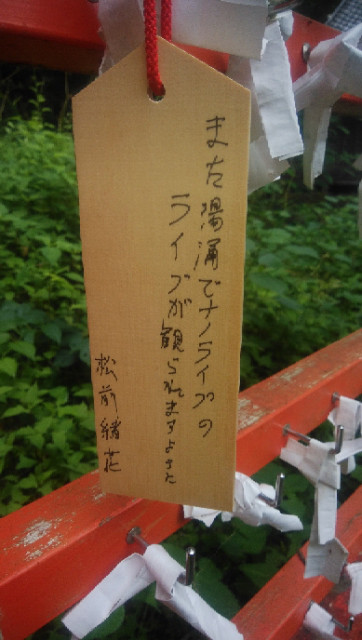 また湯涌でナノライプの
ライブが観られますように
松前緒花